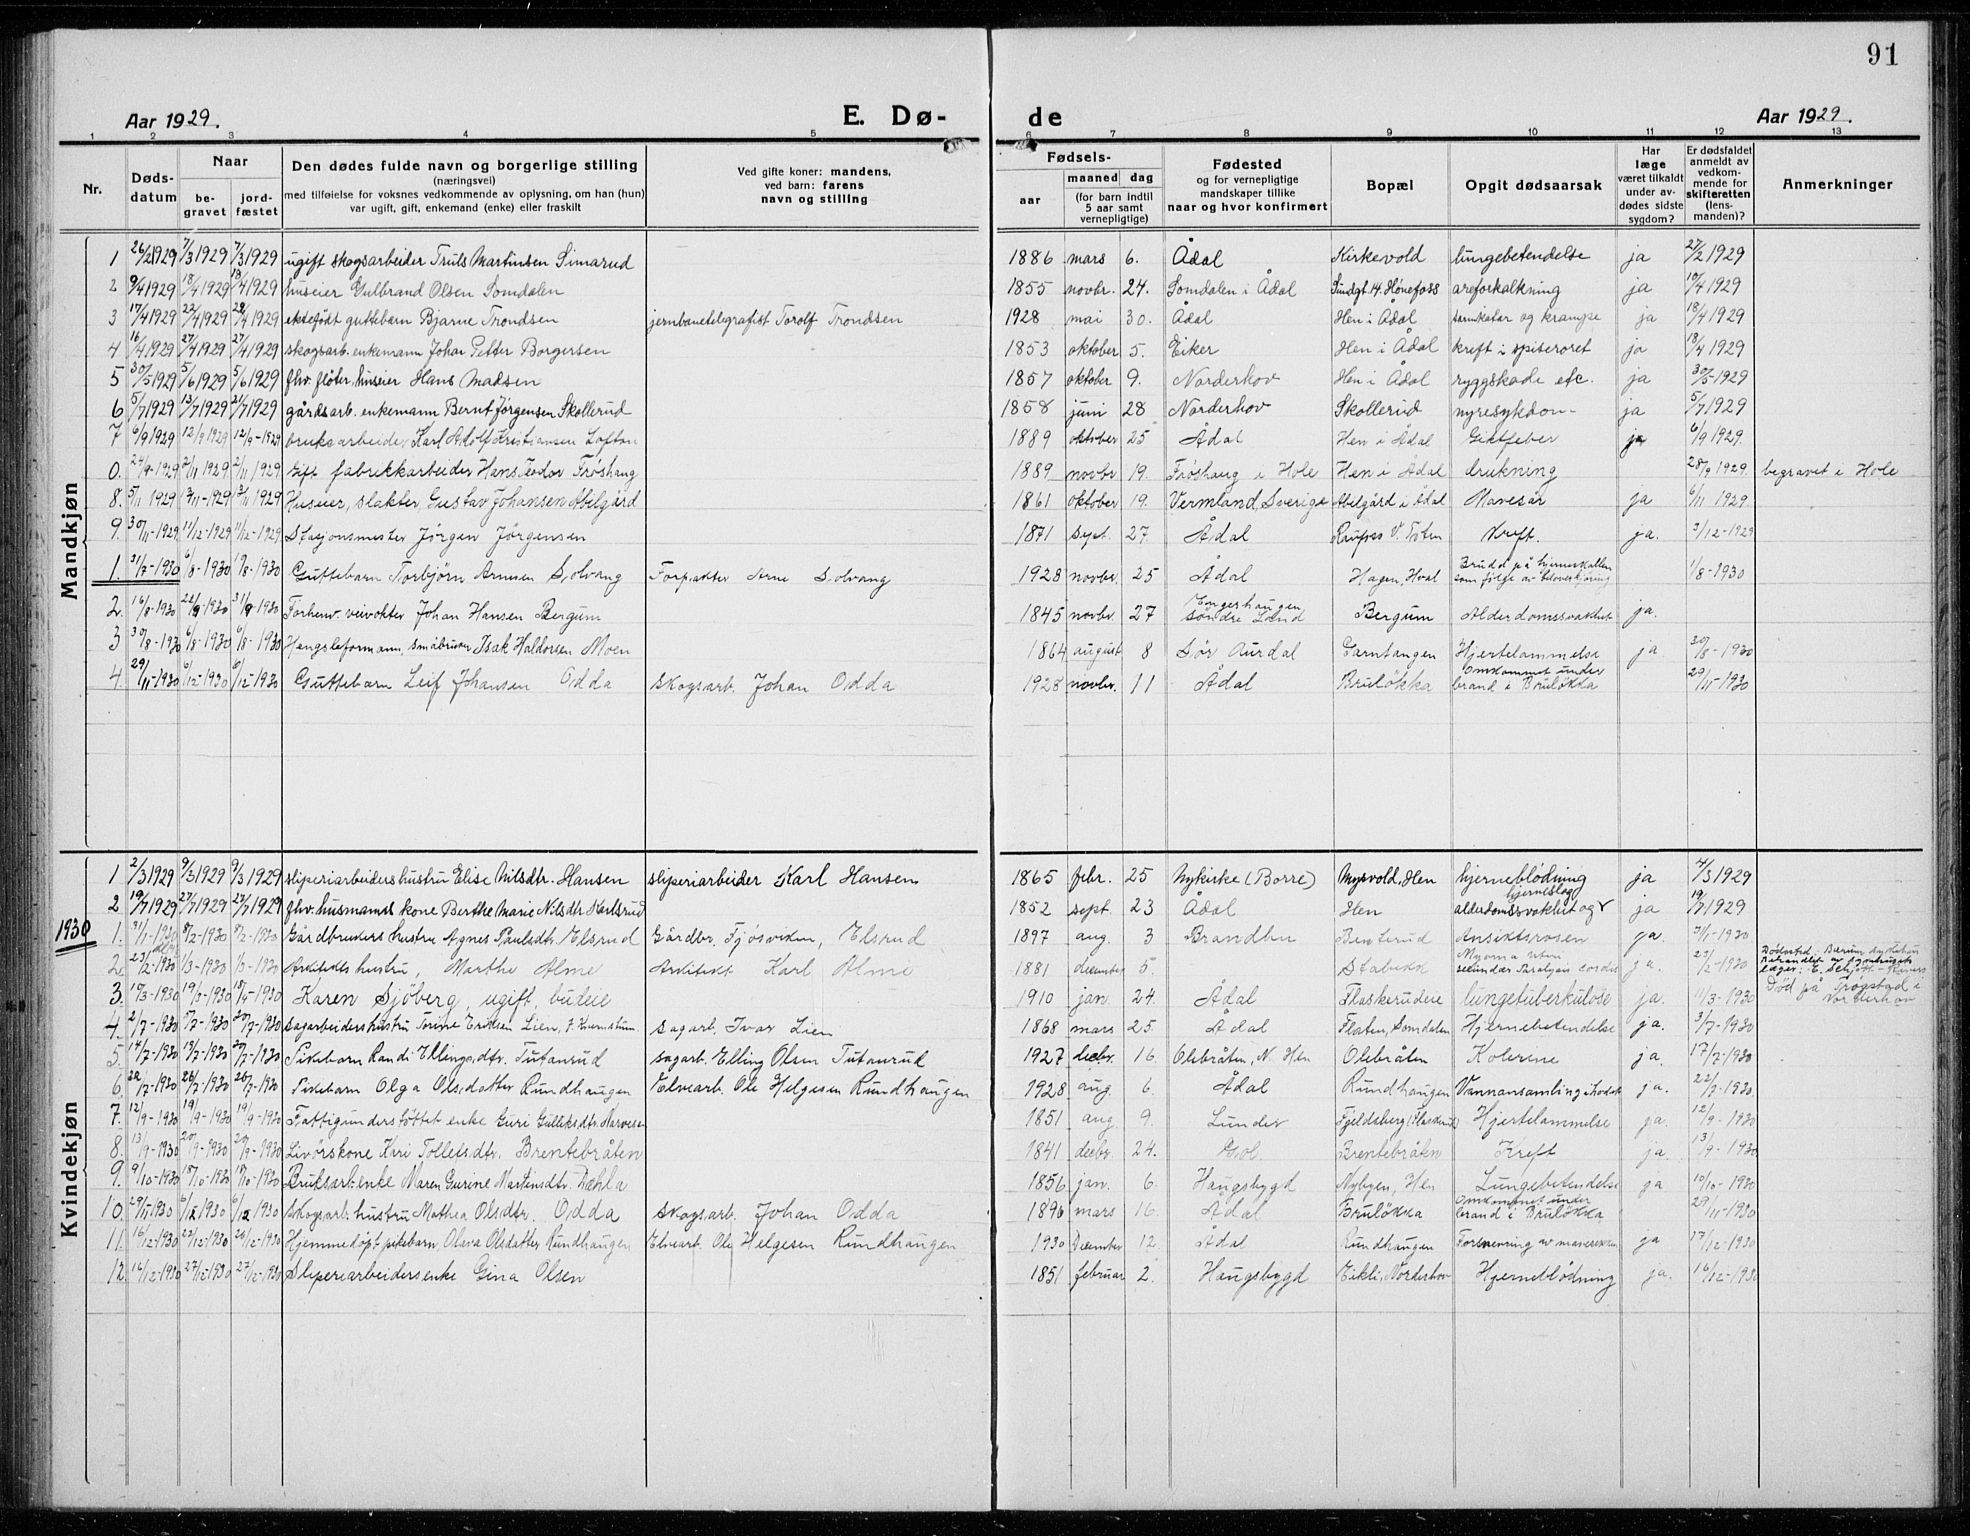 91
Aar 1929. E. Dø- de Aar 1929.
1 2 3 4 5 6 7 8 9 10 11 12 13
Nr. Døds-datum Naar be-gravet jord-fæstet Den dødes fulde navn og borgerlige stilling (næringsvei) med tilføielse for voksnes vedkommende av oplysning, om han (hun) var ugift, gift, enkemand (enke) eller fraskilt Ved gifte koner: mandens, ved barn: farens navn og stilling Fødsels- aar maaned dag (for barn indtil 5 aar samt vernepligtige) Fødested og for vernepligtige mandskaper tillike naar og hvor konfirmert Bopæl Opgit dødsaarsak Har læge været tilkaldt under av-dødes sidste sygdom? Er dødsfaldet anmeldt av vedkom-mende for skifteretten (lens-manden)? Anmerkninger
Mandkjøn
1 26/2 1929 7/3 1929 7/3 1929 ugift skogsarbeider Truls Martinsen Simarud 1886 mars 6. Ådal Kirkevold lungebetendelse ja 27/2 1929
2 9/4 1929 18/4 1929 18/4 1929 huseier Gulbrand Olsen Somdalen 1855 novbr. 24. Somdalen i Ådal Sundgt. 14. Hønefoss areforkalkning ja 10/4 1929
3 17/4 1929 22/4 1929 22/4 1929 ektefødt guttebarn Bjarne Trondsen jernbanetelegrafist Torolf Trondsen 1928 mai 30. Ådal Hen i Ådal tarmkatar og krampe ja 18/4 1929
4 16/4 1929 27/4 1929 27/4 1929 skogsarb. enkemann Johan Petter Borgersen 1853 oktober 5. Eiker Hen i Ådal kreft i spiserøret ja 18/4 1929
5 30/5 1929 5/6 1929 5/6 1929 fhv. fløter, huseier Hans Madsen 1857 oktober 9. Norderhov Hen i Ådal ryggskade etc. ja 30/5-1929
6 5/7 1929 13/7 1929 21/7 1929 gårdsarb. enkemann Bernt Jørgensen Skollerud 1858 juni 28 Norderhov Skollerud nyresykdom ja 5/7 1929
7 6/9 1929 12/9 1929 12/9-1929 bruksarbeider Karl Adolf Kristiansen Lofton 1889 oktober 25 Ådal Hen i Ådal Giktfeber ja 6/9 1929.
0. 24/9-1929 2/11 1929 2/11 1929 Gift fabrikkarbeider Hans Teodor Frøshaug 1889 novbr 19. Frøshaug i Hole Hen i Ådal drukning 28/9 1929. begravet i Hole
8. 5/11 1929 13/11-1929 13/11 1929 Huseier, slakter Gustav Johansen Abelgård 1861 oktober 19. Vermland, Sverige Abelgård i Ådal Mavesår ja 6/11 1929.
9. 30/11-1929 11/12-1929 11/12-1929 Stasjonsmester Jørgen Jørgensen 1871 sept. 27. Ådal Raufoss V. Toten Kreft. ja. 3/12-1929
1. 31/7-1930 6/8-1930 17/8-1930 Guttebarn Torbjørn Arnesen Solvang Forpakter Arne Solvang 1928 novbr. 25 Ådal Hagen, Hval Brudd på hjerneskallen som følge av 1/8-1930
2. 16/8-1930 1930 1930 Forhenv. veivokter Johan Hansen Bergum 1845 novbr. 27 Engerhaugen søndre Land Bergum Alderdomssvakhet ja.
3 30/8-1930 6/8-1930 6/8-1930 Hengsleformann, småbruker Isak Haldorsen Moen 1864 august 8 Sør Aurdal Garntangen Hjertelammelse ja. 30/8-1930
4. 29/11-1930 6/12-1930 6/12-1930 Guttebarn Leif Johansen Odda skogsarb. Johan Odda 1928 novbr. 11 Ådal Bruløkka Omkommet under brand i Bruløkka 29/11-1930
Kvindekjøn
1 2/3 1929 9/3 1929 9/3 1929 sliperiarbeiders hustru Elise Nilsdtr. Hansen sliperiarbeider Karl Hansen 1865 febr. 25 Nykirke (Borre) Mysvold, Hen hjerneblødning ja 4/3 1929
2 19/7 1929 27/7 1929 27/7 1929 fhv. husmanns kone Berthe Marie Nilsdtr Karlsrud 1852 sept. 23 Ådal Hen alderdomssvakhet og hjerneslag ja 19/7 1929
1930
1. 31/1-1930 8/2-1930 8/2-1930 Gårdbrukers hustru Agnes Paulsdtr. Elsrud Gårdbr. Fjøsviken, Elsrud 1897 aug. 3 Brandbu Benterud Ansiktsrosen ja. 31/1-1930
2. 23/2-1930 1/3-1930 1/3-1930 Arkitekts hustru, Marthe Alme Arkitekt Karl Alme 1881 december 5. Stabekk Myoma uteri secundær Paralysis cordis ja. 23/2-1930 Dødssted: Bærum sykehus
3. 10/3-1930 19/3-1930 1930 Karen Sjöberg, ugift, budeie 1910 jan. 24. Ådal Flaskerudeie lungetuberkulose ja. 11/3-1930 Død på Grøgstad i Norderhov
4. 2/7-1930 1930 20/7-1930 Sagarbeiders hustru Torine Eriksen Lien sagarb. Ivar Lien 1868 mars 25. Ådal Flaten, Somdalen Hjernebetendelse ja. 3/7-1930
5. 14/7-1930 19/7-1930 20/7-1930 Pikebarn Randi Ellingsdtr. Tutanrud sagarb. Elling Olsen Tutanrud 1927 decbr. 16. Olebråten, N. Hen Olebråten Kolerine ja. 17/7-1930
6. 1930 26/7-1930 26/7-1930 Pikebarn Olga Olsdatter Rundhaugen Elvearb. Ole Helgesen Rundhaugen 1928 aug. 6. Ådal Rundhaugen Vannansamling i hodet ja. 1930.
7. 12/9-1930 19/9-1930 19/9-1930 Fattigunderstøttet enke Guri Gulliksdtr. 1851 aug. 9. Lunder Fjeldsberg (Flaskerud) Hjertelammelse ja. 12/9-1930
8. 13/9-1930 20/9-1930 20/9-1930 Livørskone Kari Tollefsdtr. Brentebråten 1841 decbr. 24. Gol Brentebråten Kreft ja. 13/9-1930
9. 9/10-1930 18/10-1930 1930 Bruksarb. enke Maren Gurine Martinsdtr. Dæhla 1856 jan. 6. Haugsbygd Nybyen, Hen Lungebetendelse ja 10/10-1930
10. 29/11-1930 6/12 1930 6/12 1930 Skogsarb. hustru Mathea Olsdtr. Odda Skogsarb. Johan Odda 1896 mars 16. Ådal Bruløkka Omkommet under brand i Bruløkka 29/11-1930
11. 16/12-1930 22/12-1930 26/12-1930 Hjemmedøpt pikebarn Olava Olsdatter Rundhaugen Elvearb. Ole Helgesen Rundhaugen 1930 December 12 Ådal Rundhaugen Forsnevring av ja 17/12-1930
12. 14/12-1930 27/12-1930 27/12-1930 Sliperiarbeiders enke Gina Olsen 1851 februar 2. Haugsbygd Eikli, Norderhov Hjerneblødning ja. 16/12-1930